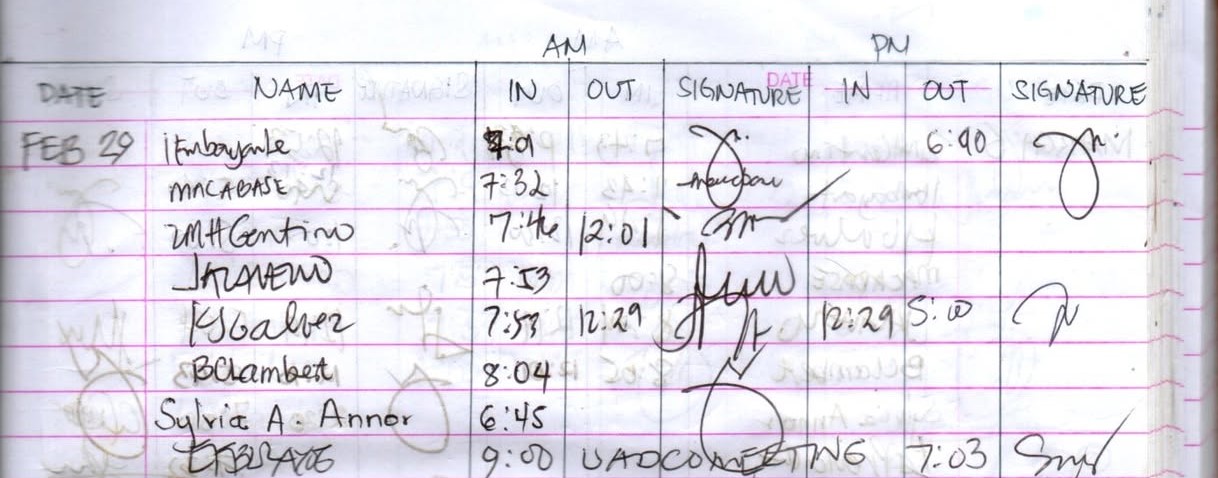 AM PM
DATE NAME IN OUT SIGNATURE DATE IN OUT SIGNATURE
FEB 29 :01 6:40
MACABASE 7:32
MHGentino 7:46 12:01
7:53
KJGalvez 7:53 12:29 12:29 5:00
BClambert 8:04
Sylvia A. Annor 6:45
9:00 UADCO MEETING 7:03